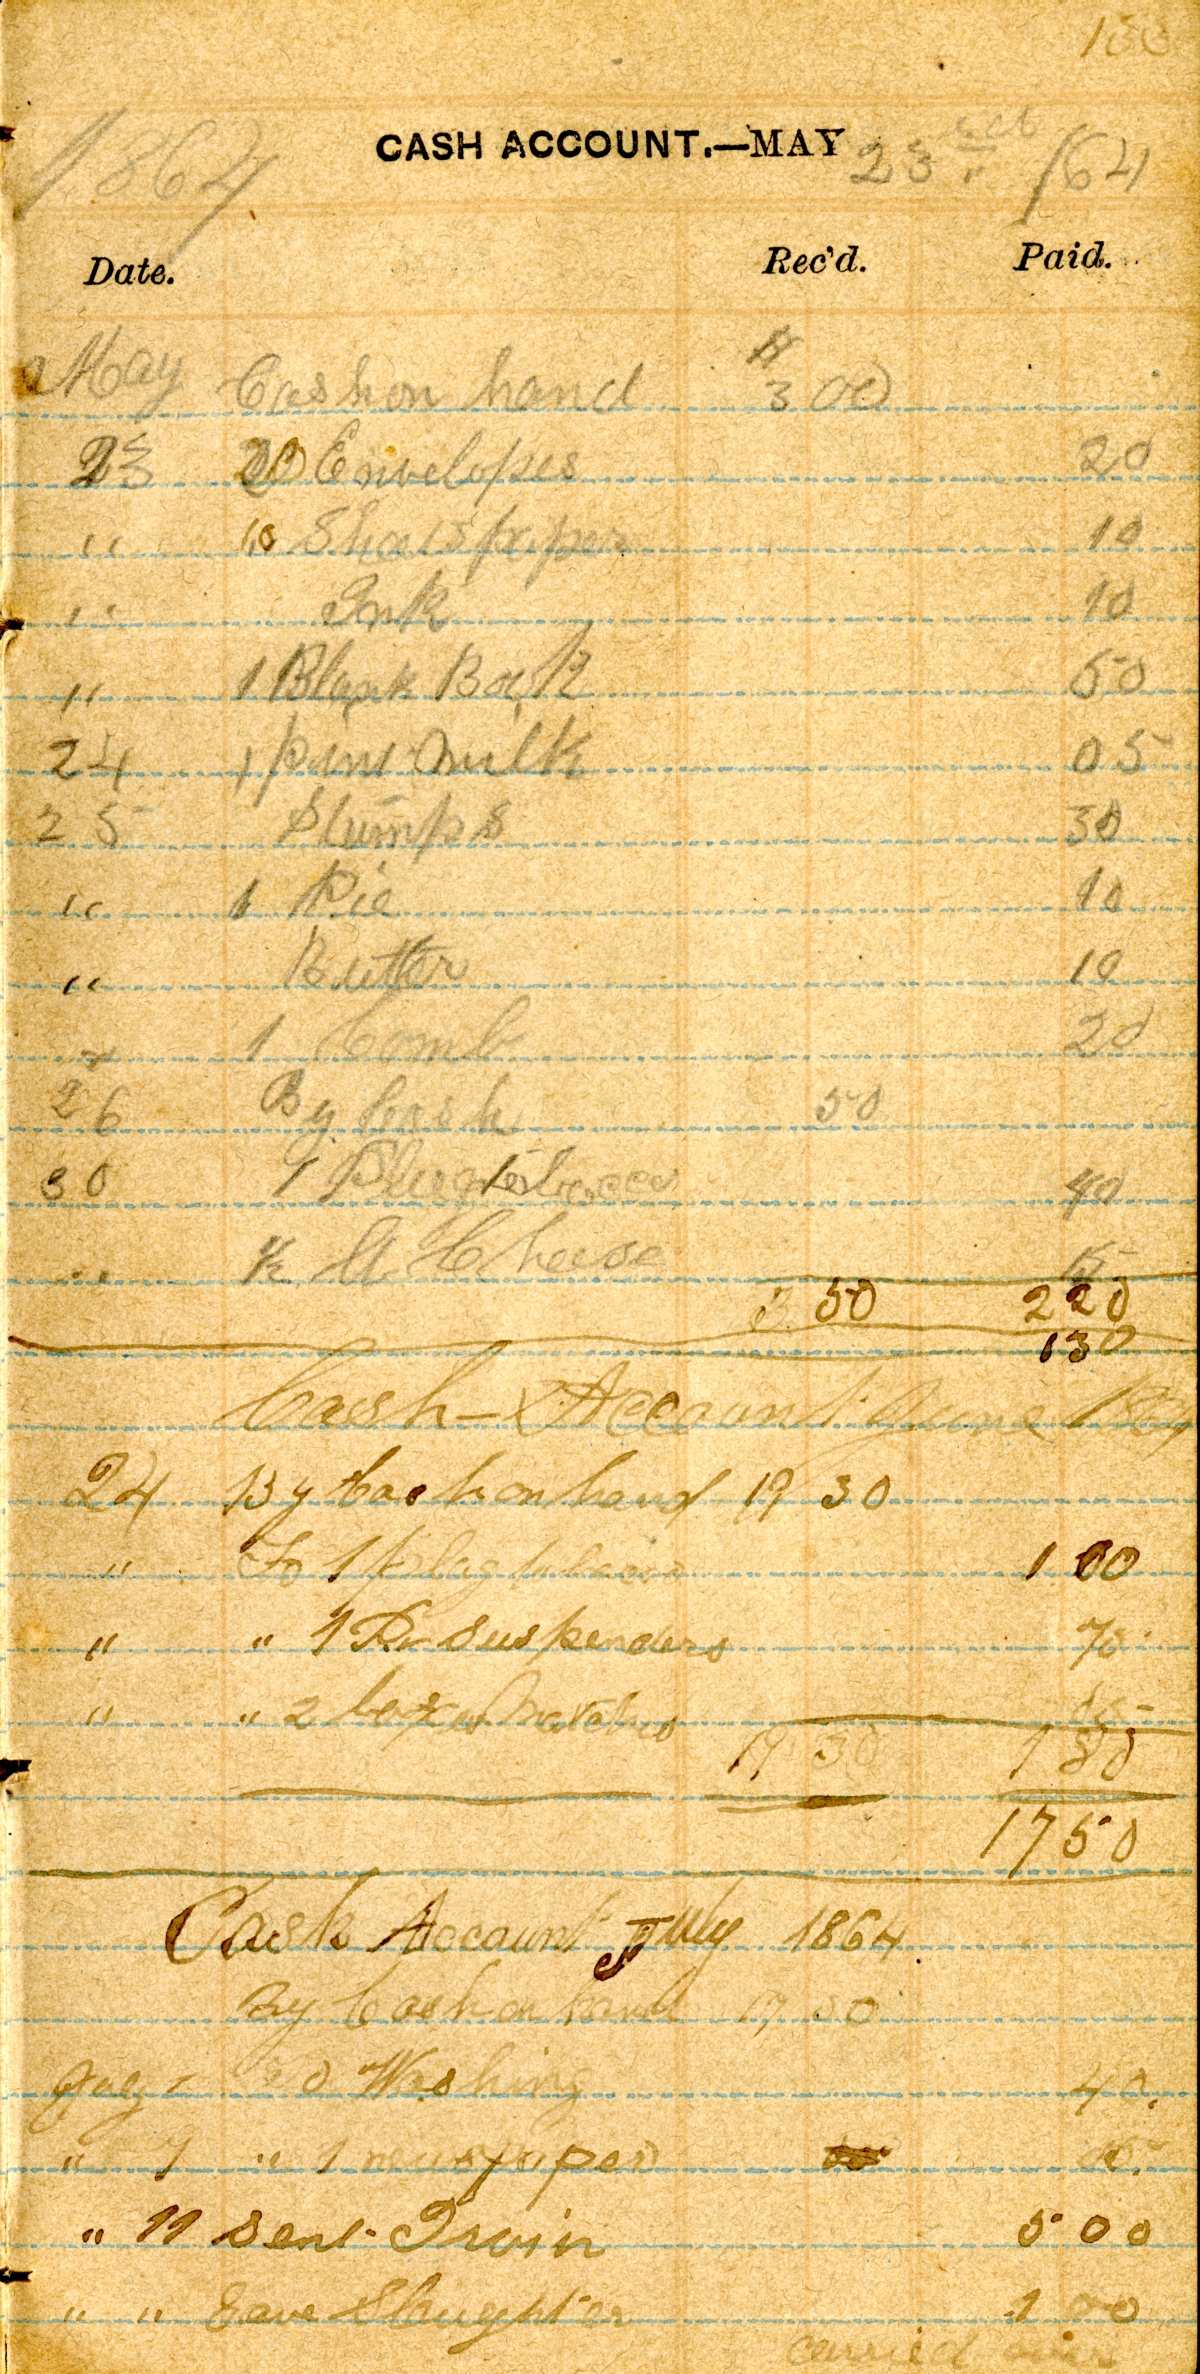 133
1864 CASH ACCOUNT.—MAY 23 /64
Date. Rec'd. Paid.
May Cash on hand $ 3 00
23 20 Envelopes 20
" 10 Sheets paper 10
" Ink 10
" 1 Blank Book 50
24 1 pint Milk 05
25 Stamps 30
" 1 Pie 10
" Butter 10
" 1 Comb 20
26 By Cash 50
30 1 Plug tobacco 40
" Cheese 15
3 50 2 20
1 30
Cash Account June 1864
24 By Cash on hand 19 30
" To 1 plug 1 00
" " 1 Pr Suspenders 75
" " 2 box Matches 05
19 30 1 80
17 50
Cash Account July 1864
By Cash on hand 17 50
July Washing 40
" 7 " 1 newspaper
" 11 Sent Irvin 5 00
" " Gave Slaughter 1 00
carried over